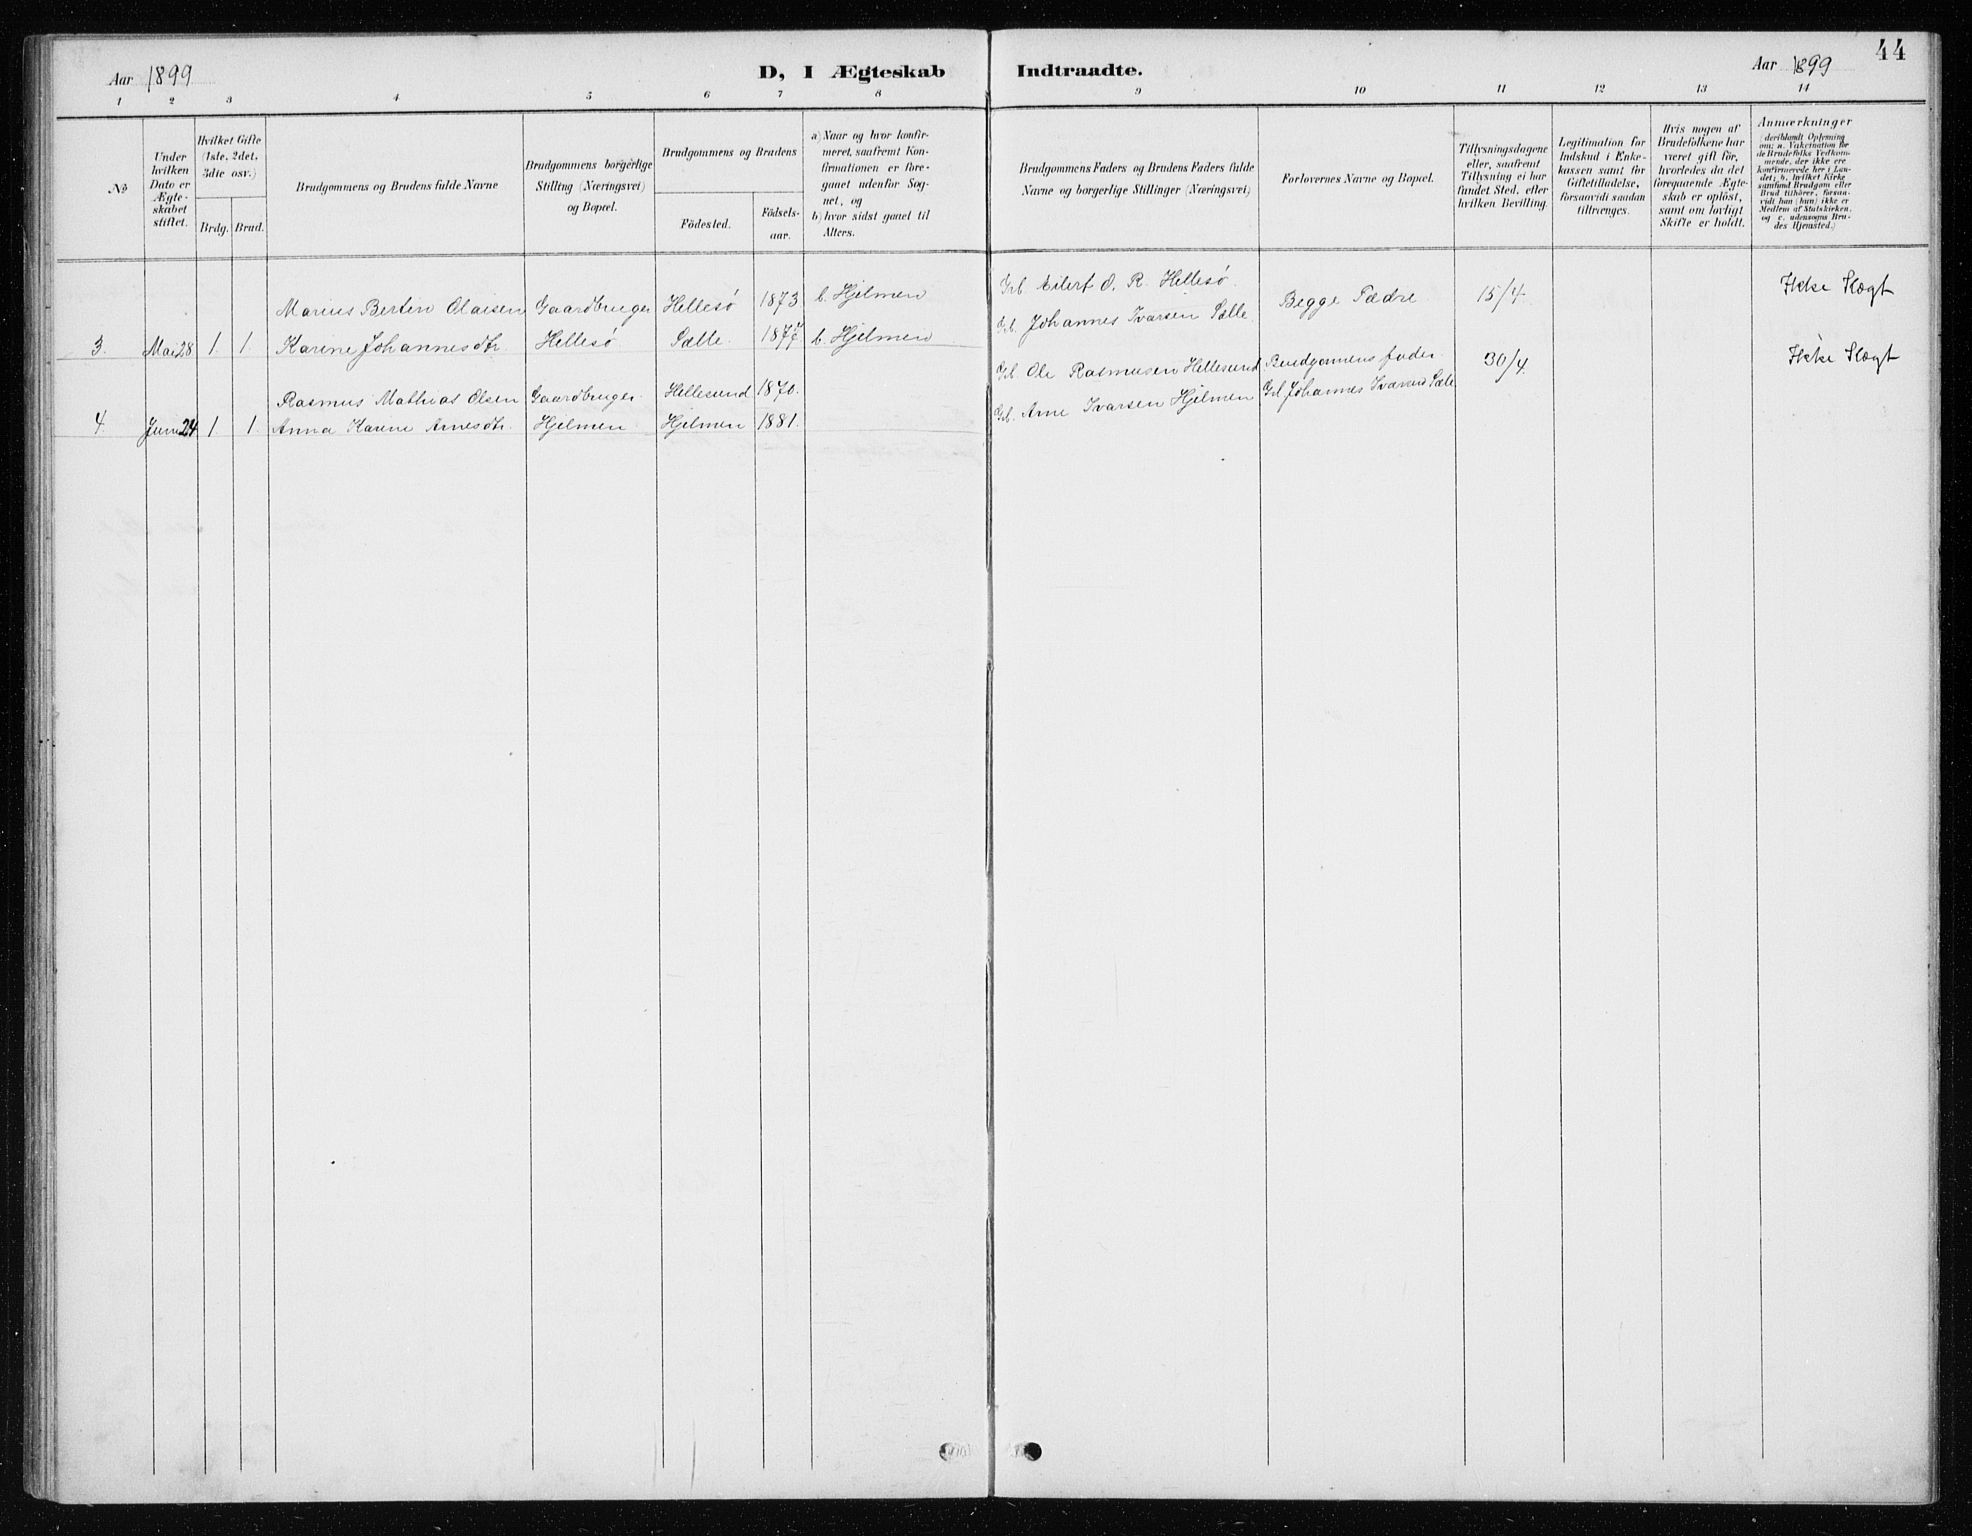 44
Aar 1899
D, I Ægteskab
Indtraadte.
Aar 1899
1 2 3 4 5 6 7 8 9 10 11 12 13 14
No
Under
hvilken
Dato er
Ægte-
skabet
stiftet.
Hvilket Gifte
(1ste, 2det,
3die osv.)
Brdg. Brud.
Brudgommens og Brudens fulde Navne
Brudgommens borgerlige
Stilling (Næringsvei)
og Bopæl.
Brudgommens og Brudens
Födested.
Födsels-
aar.
a) Naar og hvor konfir-
meret, saafremt Kon-
firmationen er fore-
gaaet udenfor Sog-
net, og
b) hvor sidst gaaet til
Alters.
Brudgommens Faders og Brudens Faders fulde
Navne og borgerlige Stillinger (Næringsvei)
Forlovernes Navne og Bopæl.
Tillysningsdagene
eller, saafremt
Tillysning ei har
fundet Sted, efter
hvilken Bevilling.
Legitimation for
Indskud i Enke-
kassen samt for
Giftetilladelse,
forsaavidt saadan
tiltrænges.
Hvis nogen af
Brudefolkene har
været gift før,
hvorledes da det
foregaaende Ægte-
skab er oplöst,
samt om lovligt
Skifte er holdt.
Anmærkninger
(deriblandt Oplysning
om: a. Vakcination for
de Brudefolks Vedkom-
mende, der ikke ere
konfirmerede her i Lan-
det; b. hvilket Kirke
samfund Brudgom eller
Brud tilhörer, forsaa-
vidt han (hun) ikke er
Medlem af Statskirken,
og c. udensogns Bru-
des Hjemsted.)
Marius Bertin Olaisen Gaardbruger Hellesö 1873 b. Hjelmen Grb. Eilert O. R. Hellesö. Begge Fædre. 15/4. Ikke Slægt
3. Mai 28 1. 1. Karine Johannesdtr. Hellesö Sælle. 1877. b. Hjelmen Grb. Johannes Ivarsen Sælle
Rasmus Mathias Olsen Gaardbruger. Hellesund 1870. Grb. Ole Rasmusen Hellesund Brudgommens fader. 30/4. Ikke Slægt
4. Juni 24 1 1. Anna Karine Arnesdtr. Hjelmen Hjelmen 1881. Grb. Arne Ivarsen Hjelmen Grb Johannes Ivarsen Sæle